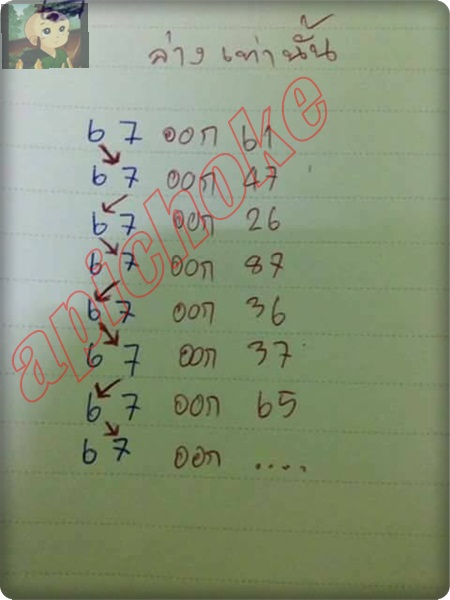 ล่าง เท่านั้น
67 ออก 61
67 ออก 47
67 ออก 26
67 ออก 87
67 ออก 36
67 ออก 37
67 ออก 65
67 ออก ....
apichoke